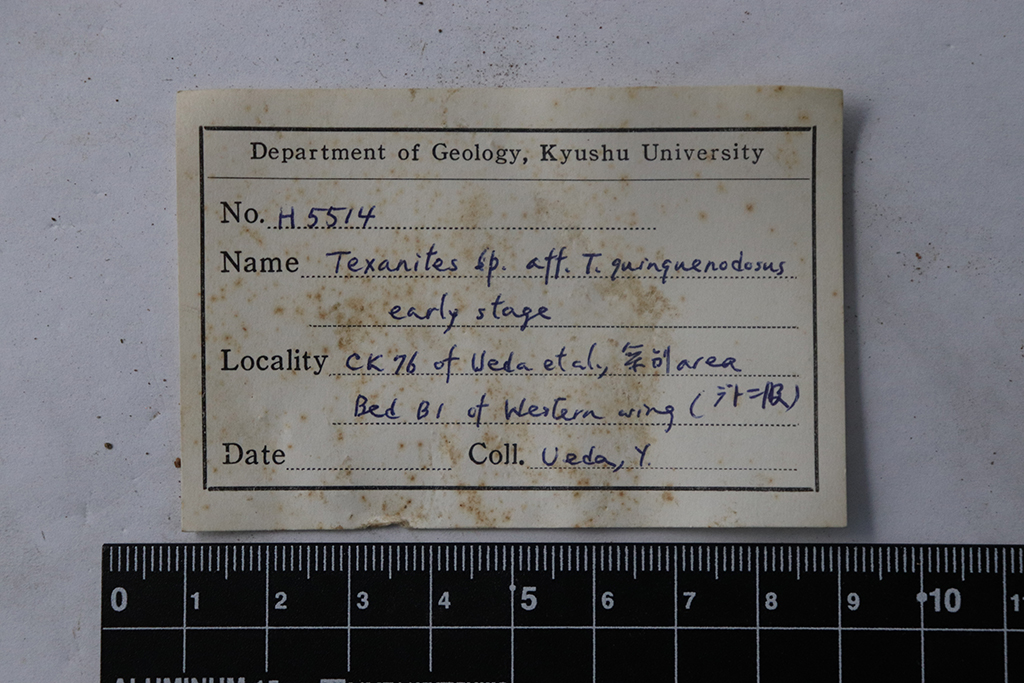 Department of Geology, Kyushu University
No. H 5514
Name Texanites sp. aff. T. quinquenodosus
early stage
Locality CK 76 of Ueda et al., area
Bed B1 of Western wing (
Date Coll. Ueda, Y.
0 1 2 3 4 5 6 7 8 9 10 11